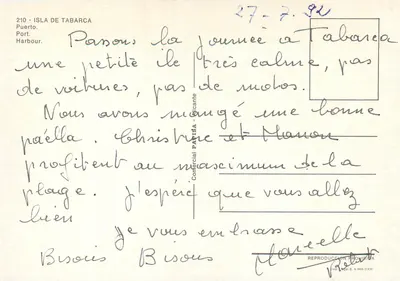 210 - ISLA DE TABARCA
Puerto.
Port.
Harbour.
27-7.92
Passons la journee a Tabarca
une petite ile très calme, pas
de voitures, pas de motos.
Nous avons mangé une bonne
paélla. Christine et Manon
profitent au mascimum de la
plage. J'espère que vous allez
bien
Je vous embrasse
Bisous Bisous
Marcelle
Comercial PAVISA Alicante